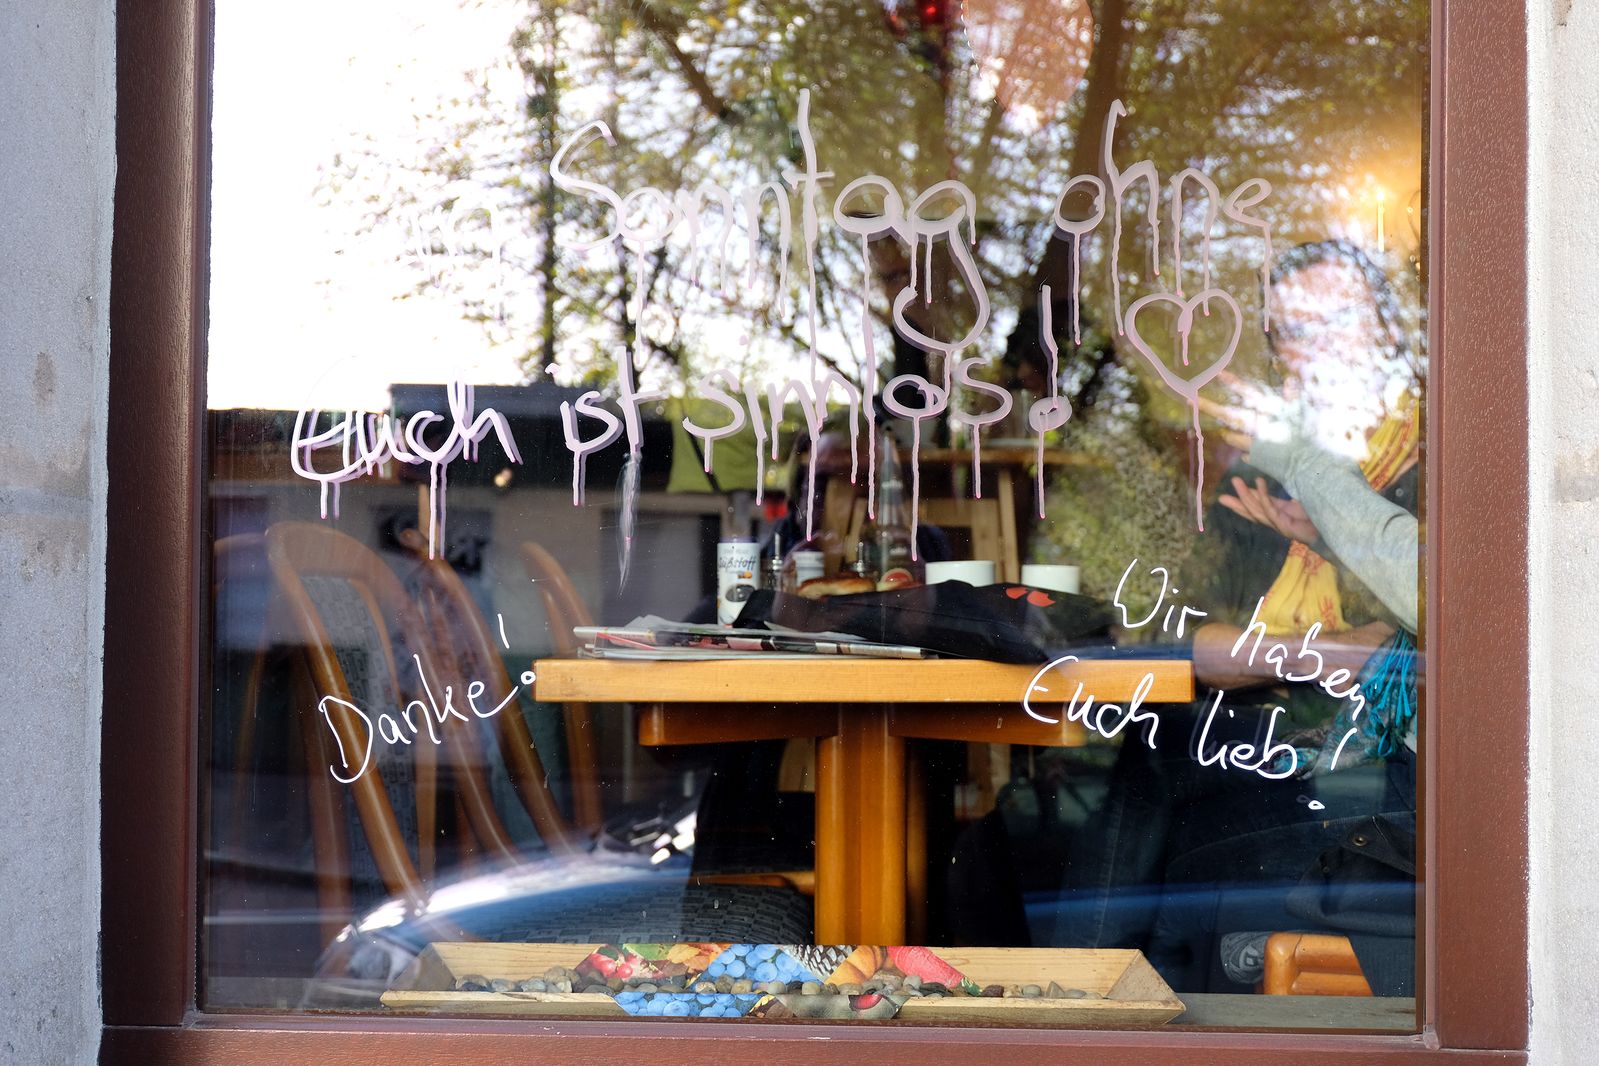 Ein Sonntag ohne
Euch ist sinnlos! ♡
Süßstoff
Danke!
Wir haben
Euch lieb!